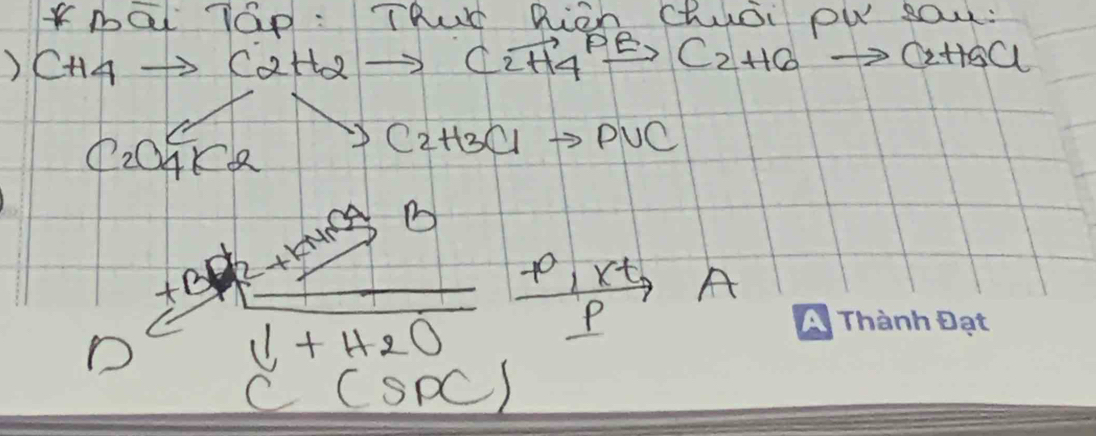 * Bài Tập: Thực hiện chuỗi pư sau:
) CH4 → C2H2 → C2H4 → C2H6 → C2H5Cl
PE
C2O4K2 C2H3Cl → PVC
+KMnO4 B
+Br2
+0, xt, A
P
D ↓ + H2O
C (SPC)
A Thành Đạt